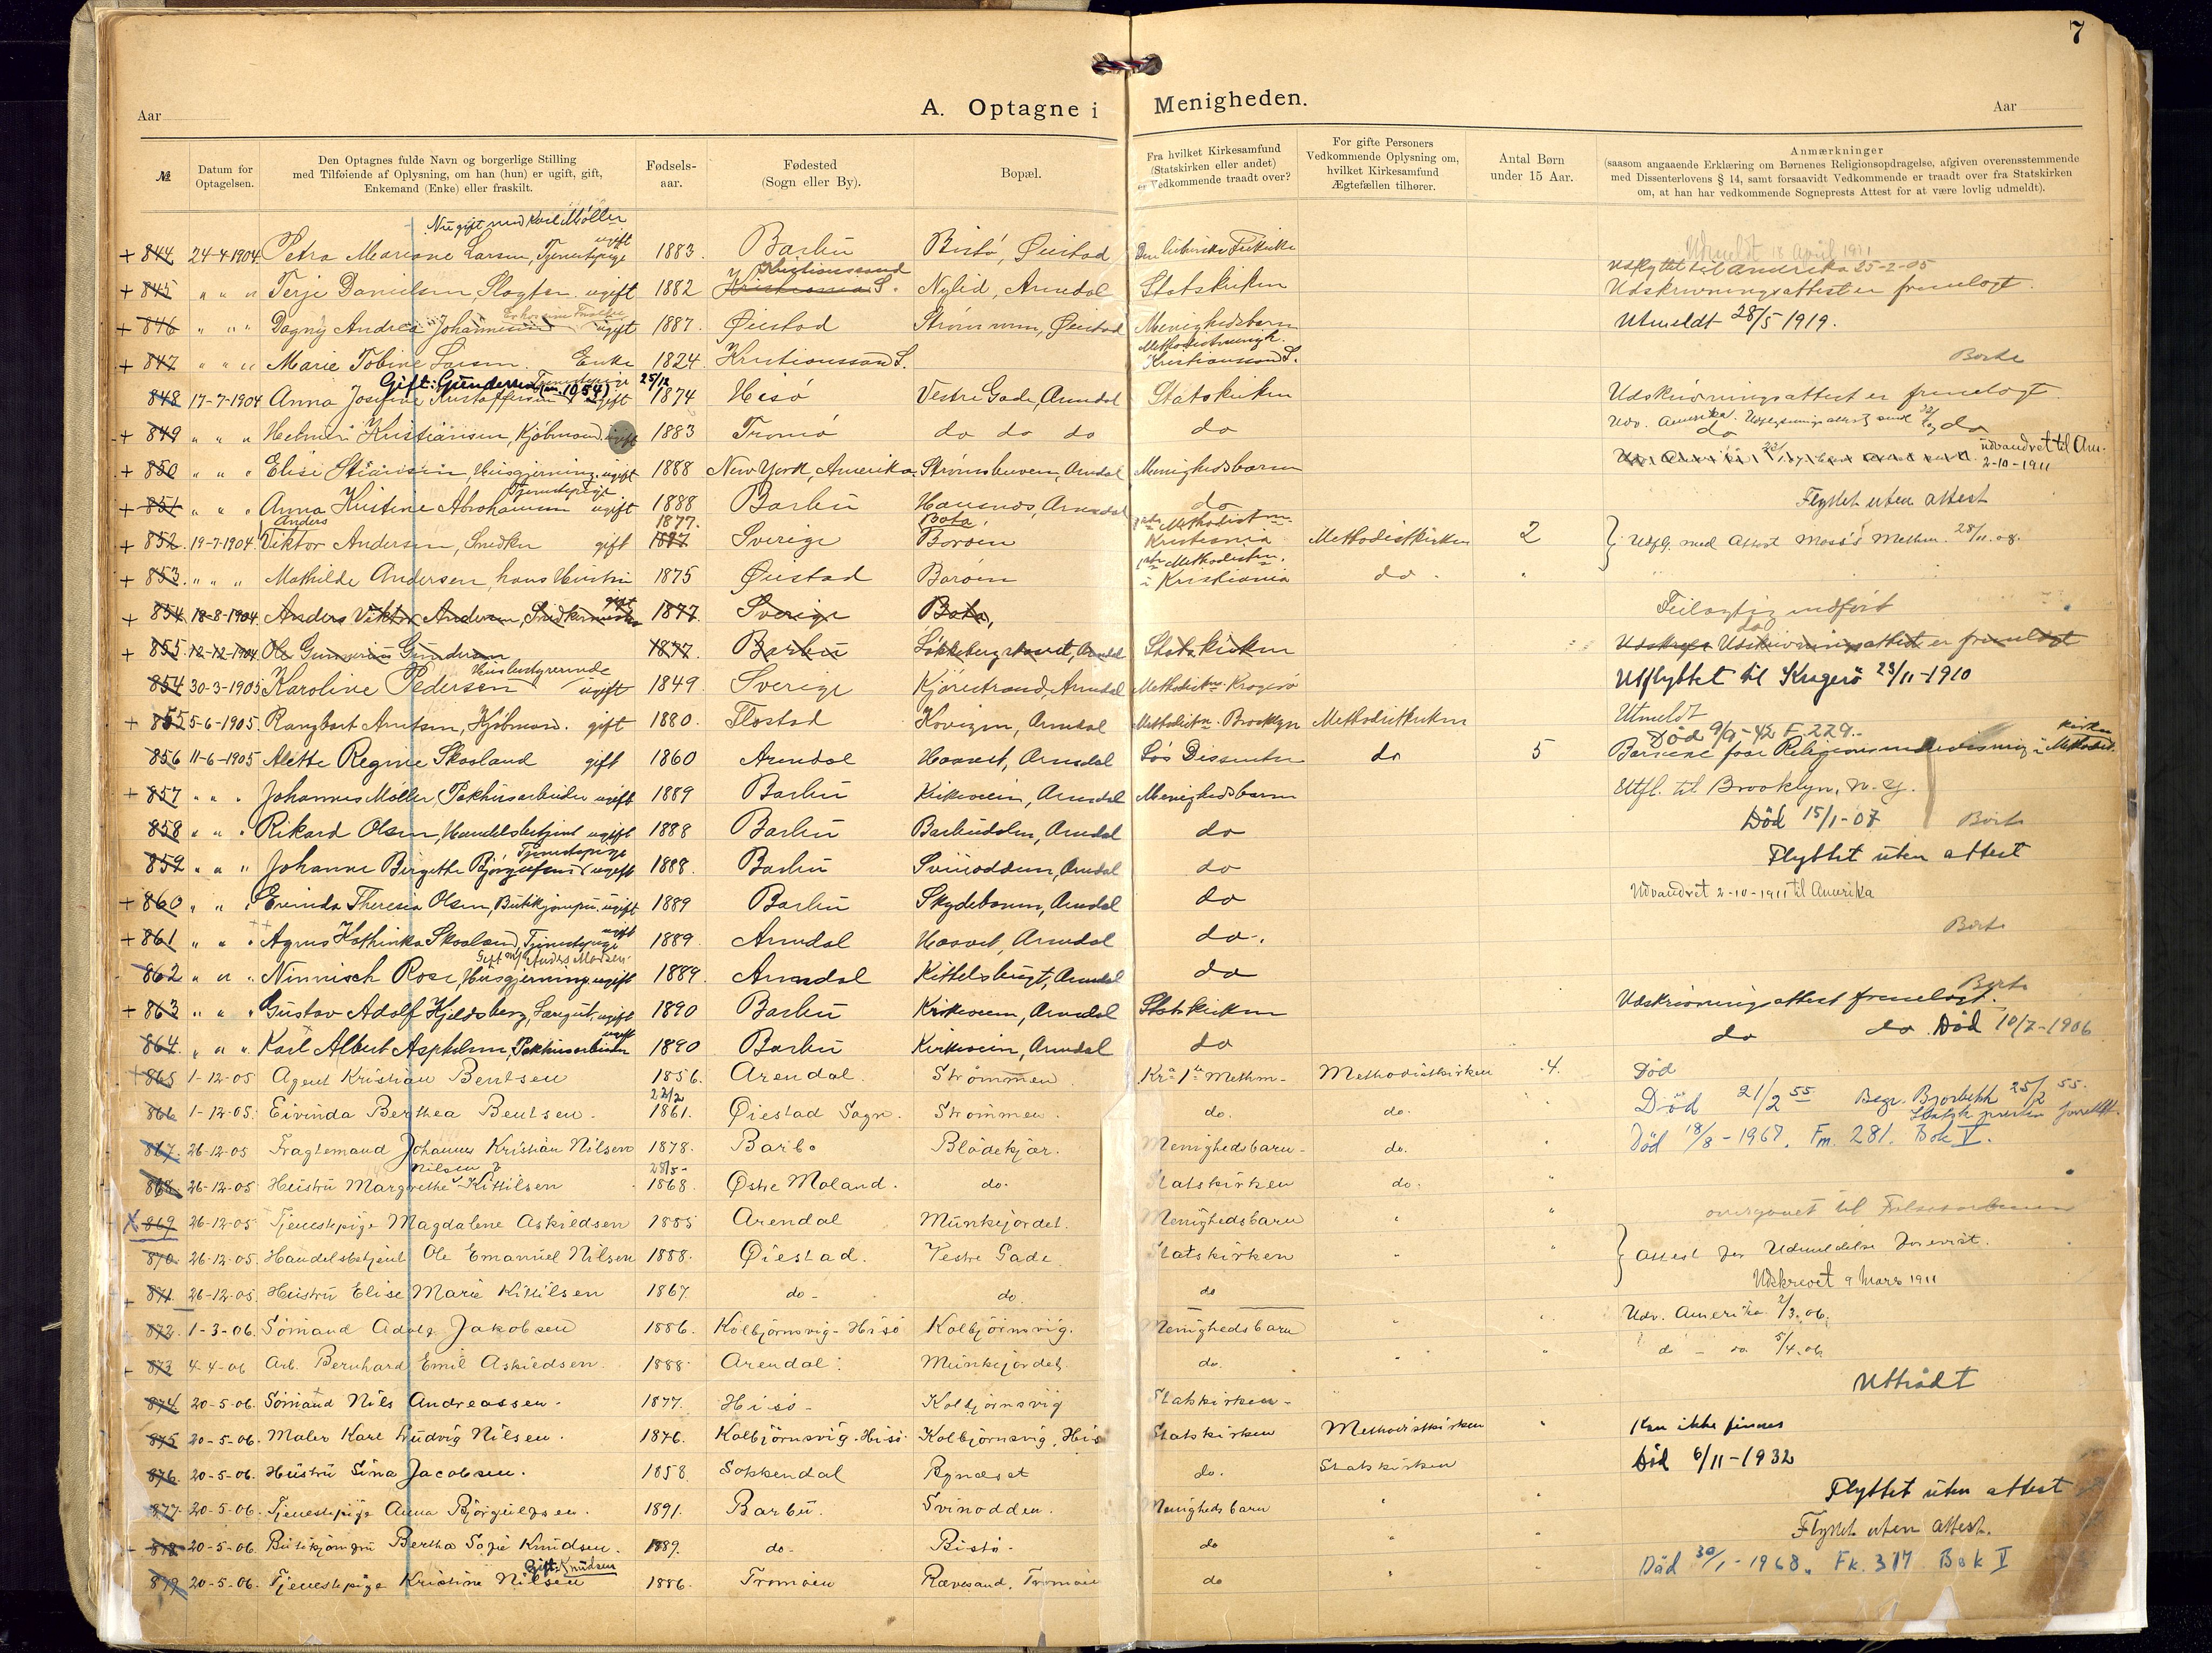 7
Aar
A. Optagne i Menigheden.
Aar
№
Datum for Optagelsen.
Den Optagnes fulde Navn og borgerlige Stilling
med Tilføiende af Oplysning, om han (hun) er ugift, gift,
Enkemand (Enke) eller fraskilt.
Fødsels-
aar.
Fødested
(Sogn eller By).
Bopæl.
Fra hvilket Kirkesamfund
(Statskirken eller andet)
er Vedkommende traadt over?
For gifte Personers
Vedkommende Oplysning om,
hvilket Kirkesamfund
Ægtefællen tilhører.
Antal Børn
under 15 Aar.
Anmærkninger
(saasom angaaende Erklæring om Børnenes Religionsopdragelse, afgiven overensstemmende
med Dissenterlovens § 14, samt forsaavidt Vedkommende er traadt over fra Statskirken
om, at han har vedkommende Sogneprests Attest for at være lovlig udmeldt).
Nu gift med Karl Møller
+ 844 24-4-1904 Petra Mariane Larsen, Tjenestepige ugift 1883 Barbu Bistø, Øiestad Udmeldt 18 April 1911
Udflyttet til Amerika 25-2-05
+ 845 " " " Terje Danielsen, Slagter. ugift 1882 Kristianssand S. Nylid, Arendal Statskirken Udskrivningsattest er fremlagt.
+ 846 " " " Dagny Andrea Johannesen ugift 1887. Øiestad Strømmen, Øiestad Menighedsbarn Utmeldt 28/5 1919.
+ 847 " " " Marie Tobine Larsen. Enke 1824. Kristianssand S. Methodistmenigh. Kristianssand S. Borte
Gift: Gundersen (1954) Tjenestepige 25/12
848 17-7-1904 Anna Josefine Kristoffersen ugift 1874 Hisø Vestre Gade, Arendal Statskirken Udskrivningsattest er fremlagt.
+ 849 " " " Helmer Kristiansen, Kjøbmand. ugift 1883 Tromø do do do do Udv. Amerika. do do
+ 850 " " " Elise Stiansen, Husgjerning. ugift 1888 New York, Amerika. Strømsbuveien, Arendal Menighedsbarn udvandret til Am. 2-10-1911
Tjenestepige
+ 851 " " " Anna Kristine Abrahamsen ugift 1888 Barbu Havsnes, Arendal do Flyttet uten attest
Anders 1877. Bota 1ste Methodistm.
+ 852. 19-7-1904 Viktor Andersen, Snedker gift 1887 Sverige Barøen Kristiania Methodistkirken 2 Udfl. med Attest Moss's Methm. 28/11.08.
+ 853. " " " Mathilde Andersen, hans Hustru 1875 Øiestad Barøen 1ste Methodistm. i Kristiania do. "
+ 854 18-8-1904 Anders Viktor Andersen, Snedkermester gift 1877. Sverige Bota, Feilagtig indført
+ 855. 12-12-1904 Ole Gunnerius Gundersen 1877. Barbu Løkkebergstranet, Arendal Statskirken Udskrivningsattest er fremlagt
Husbestyrerinde
854 30-3-1905 Karoline Pedersen ugift 1849. Sverige Kjørestrand, Arendal Methodistm. Kragerø Utflyttet til Kragerø 23/11-1910
+ 855 5-6-1905. Rangbart Arntsen, Kjøbmand. gift 1880. Flostad Kovigen, Arendal Methodistm. Brooklyn Methodistkirken Utmeldt
Død 9/9-42 F. 229.
856 11-6-1905 Alette Regine Skaaland gift 1860 Arendal Haavet, Arendal Løs Dissenter do 5 Barnene faar Religionsundervisning i Methodistkirken
+ 857 " " " Johannes Møller, Pakhusarbeider ugift 1889 Barbu Kirkeveien, Arendal Menighedsbarn Utfl. til Brooklyn, N. Y.
858 " " " Rikard Olsen, Handelsbetjent ugift 1888 Barbu Barbudalen, Arendal do Død 15/1-07 Borte
Tjenestepige
859 " " " Johanne Birgitte Bjørgulfsen ugift 1888. Barbu Svinodden, Arendal do Flyttet uten attest
+ 860 " " " Evinda Theresia Olsen, Butikjomfru. ugift 1889 Barbu Skydebanen, Arendal do Udvandret 2-10-1911 til Amerika
+ 861 " " " Agnes Kathinka Skaaland, Tjenestepige ugift 1889. Arendal Haavet, Arendal do. Borte
Gift m/ Anders Madsen.
862 " " " Ninnisch Rose, Husgjerning. ugift 1889. Arendal Kittelsbugt, Arendal do
+ 863 " " " Gustav Adolf Hjeldsberg, Læregut, ugift 1890 Barbu Kirkeveien, Arendal Statskirken Udskrivningsattest fremlagt. Borte
864. " " " Karl Albert Aspholm, Pakhusarbeider ugift 1890 Barbu Kirkeveien, Arendal do do do. Død 10/7-1906
+ 865 1-12-05 Agent Kristian Bentsen 1856. Arendal. Strømmen. Kra 1ste Methm. Methodistkirken 4. Død
22/2
866 1-12-05. Eivinda Berthea Bentsen. 1861. Øiestad Sogn. Strømmen. do. do. " Død 21/2 55 Begr. Bjorbekk 25/2 55.
867. 26-12-05 Fragtemand Johannes Kristian Nilsen 1878. Barbo Blødekjær. Menighedsbarn. do. " Død 18/8-1967. Fm. 281. Bok V.
Nilsen 28/5-
868. 26-12-05 Hustru Margrethe Kittilsen 1868. Østre Moland. do. Statskirken do. "
X 869 26-12-05 Tjenestepige Magdalene Askildsen 1885 Arendal Munkejordet. Menighedsbarn " " overgaaet til Frelsesarmeen
870. 26-12-05. Handelsbetjent Ole Emanuel Nilsen 1888. Øiestad. Vestre Gade. Statskirken " " Attest for Udmeldelse forevist.
871. 26-12-05. Hustru Elise Marie Kittilsen 1867. do. do. do Udskrevet 9 Mars 1911
872. 1-3-06. Sømand Adolg Jakobsen 1886. Kolbjørnsvig-Hisø Kolbjørnsvig. Menighedsbarn " " Udv. Amerika 2/3.06.
873 4-4-06 Arb. Bernhard Emil Askildsen. 1888. Arendal. Munkejordet do. " " do - do 5/4.06
874. 20-5-06. Sømand Nils Andreassen. 1877. Hisø. Kolbjørnsvig Statskirken. " Uttrådt
875 20-5-06. Maler Karl Ludvig Nilsen. 1876. Kolbjørnsvig-Hisø. Kolbjørnsvig, His Statskirken Methodistkirken " Kan ikke finnes
876. 20-5-06. Hustru Sina Jacobsen. 1858. Sokkendal Rynæset do. Statskirken Død 6/11-1932
877. 20-5-06. Tjenestepige Anna Bjørgulfsen. 1891. Barbu. Svinodden. Menighedsbarn " " Flyttet uten attest
878. 20-5-06. Butikjomfru Bertha Sofie Knudsen. 1889. do. Bistø. do " " Flyttet uten attest.
Gift: Knudsen
879 20-5-06. Tjenestepige Kristine Nilsen 1886. Tromøen Rævesand, Tromøen do " " Død 30/1-1968. Fk. 317 Bok V